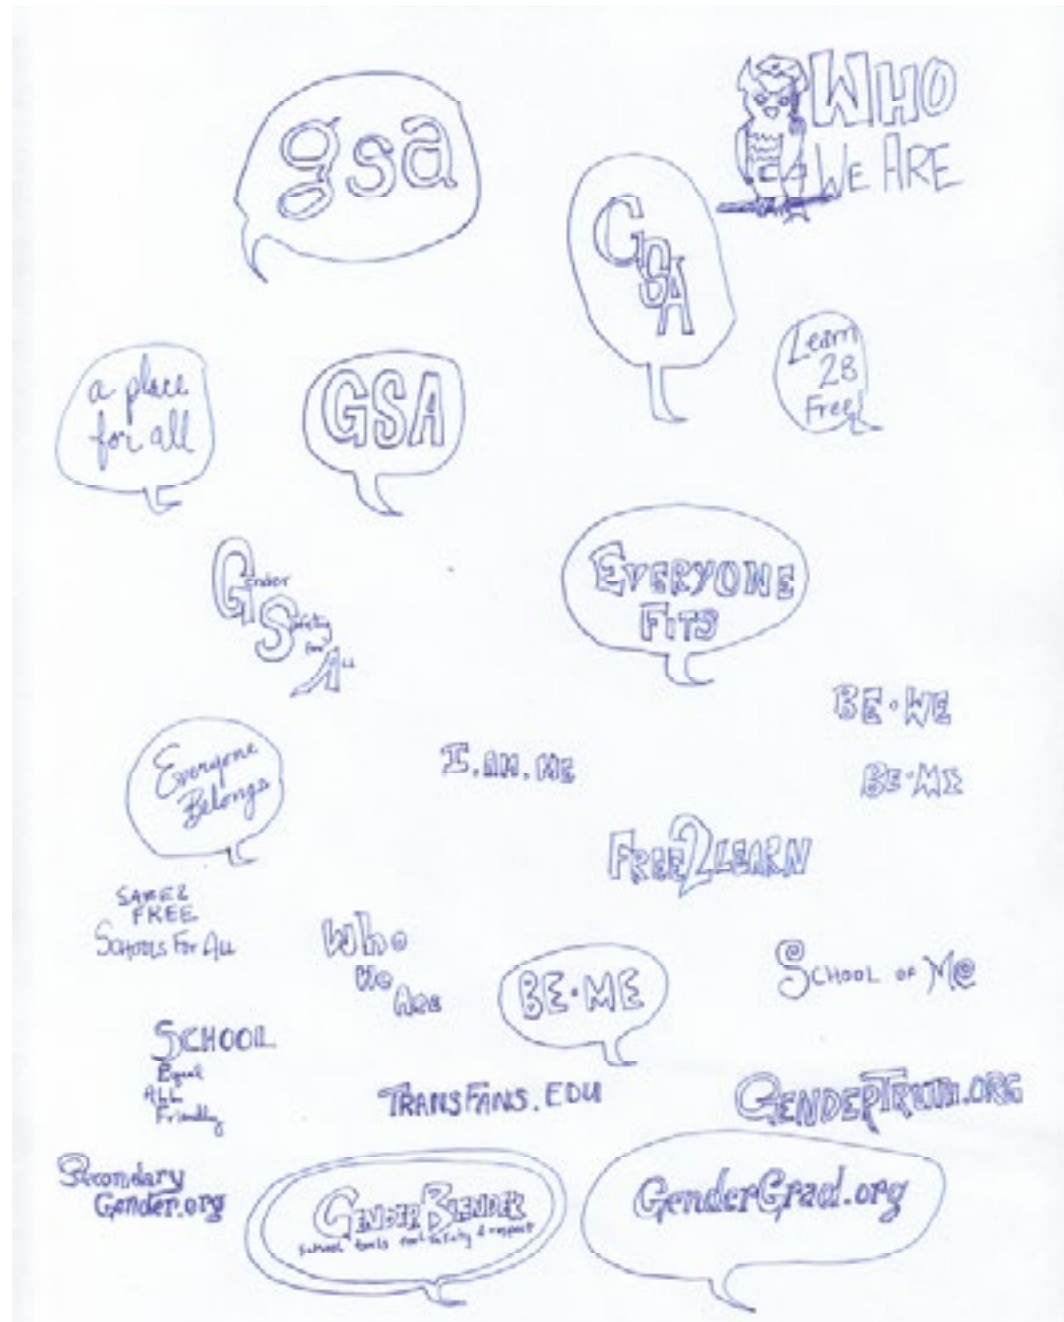 gsa
WHO
WE ARE
GSA
Learn
2B
Free!
a place
for all
GSA
Gender
Safety
for
All
EVERYONE
FITS
BE·WE
Everyone
Belongs
I.AM.ME
BE·ME
FREE2LEARN
SAFE2
FREE
SCHOOLS FOR ALL
Who
We
Are
BE·ME
SCHOOL OF Me
SCHOOL
Equal
ALL
Friendly
TRANSFANS.EDU
GENDERTRUTH.ORG
Secondary
Gender.org
GENDERBLENDER
school tools for safety & respect
GenderGrad.org